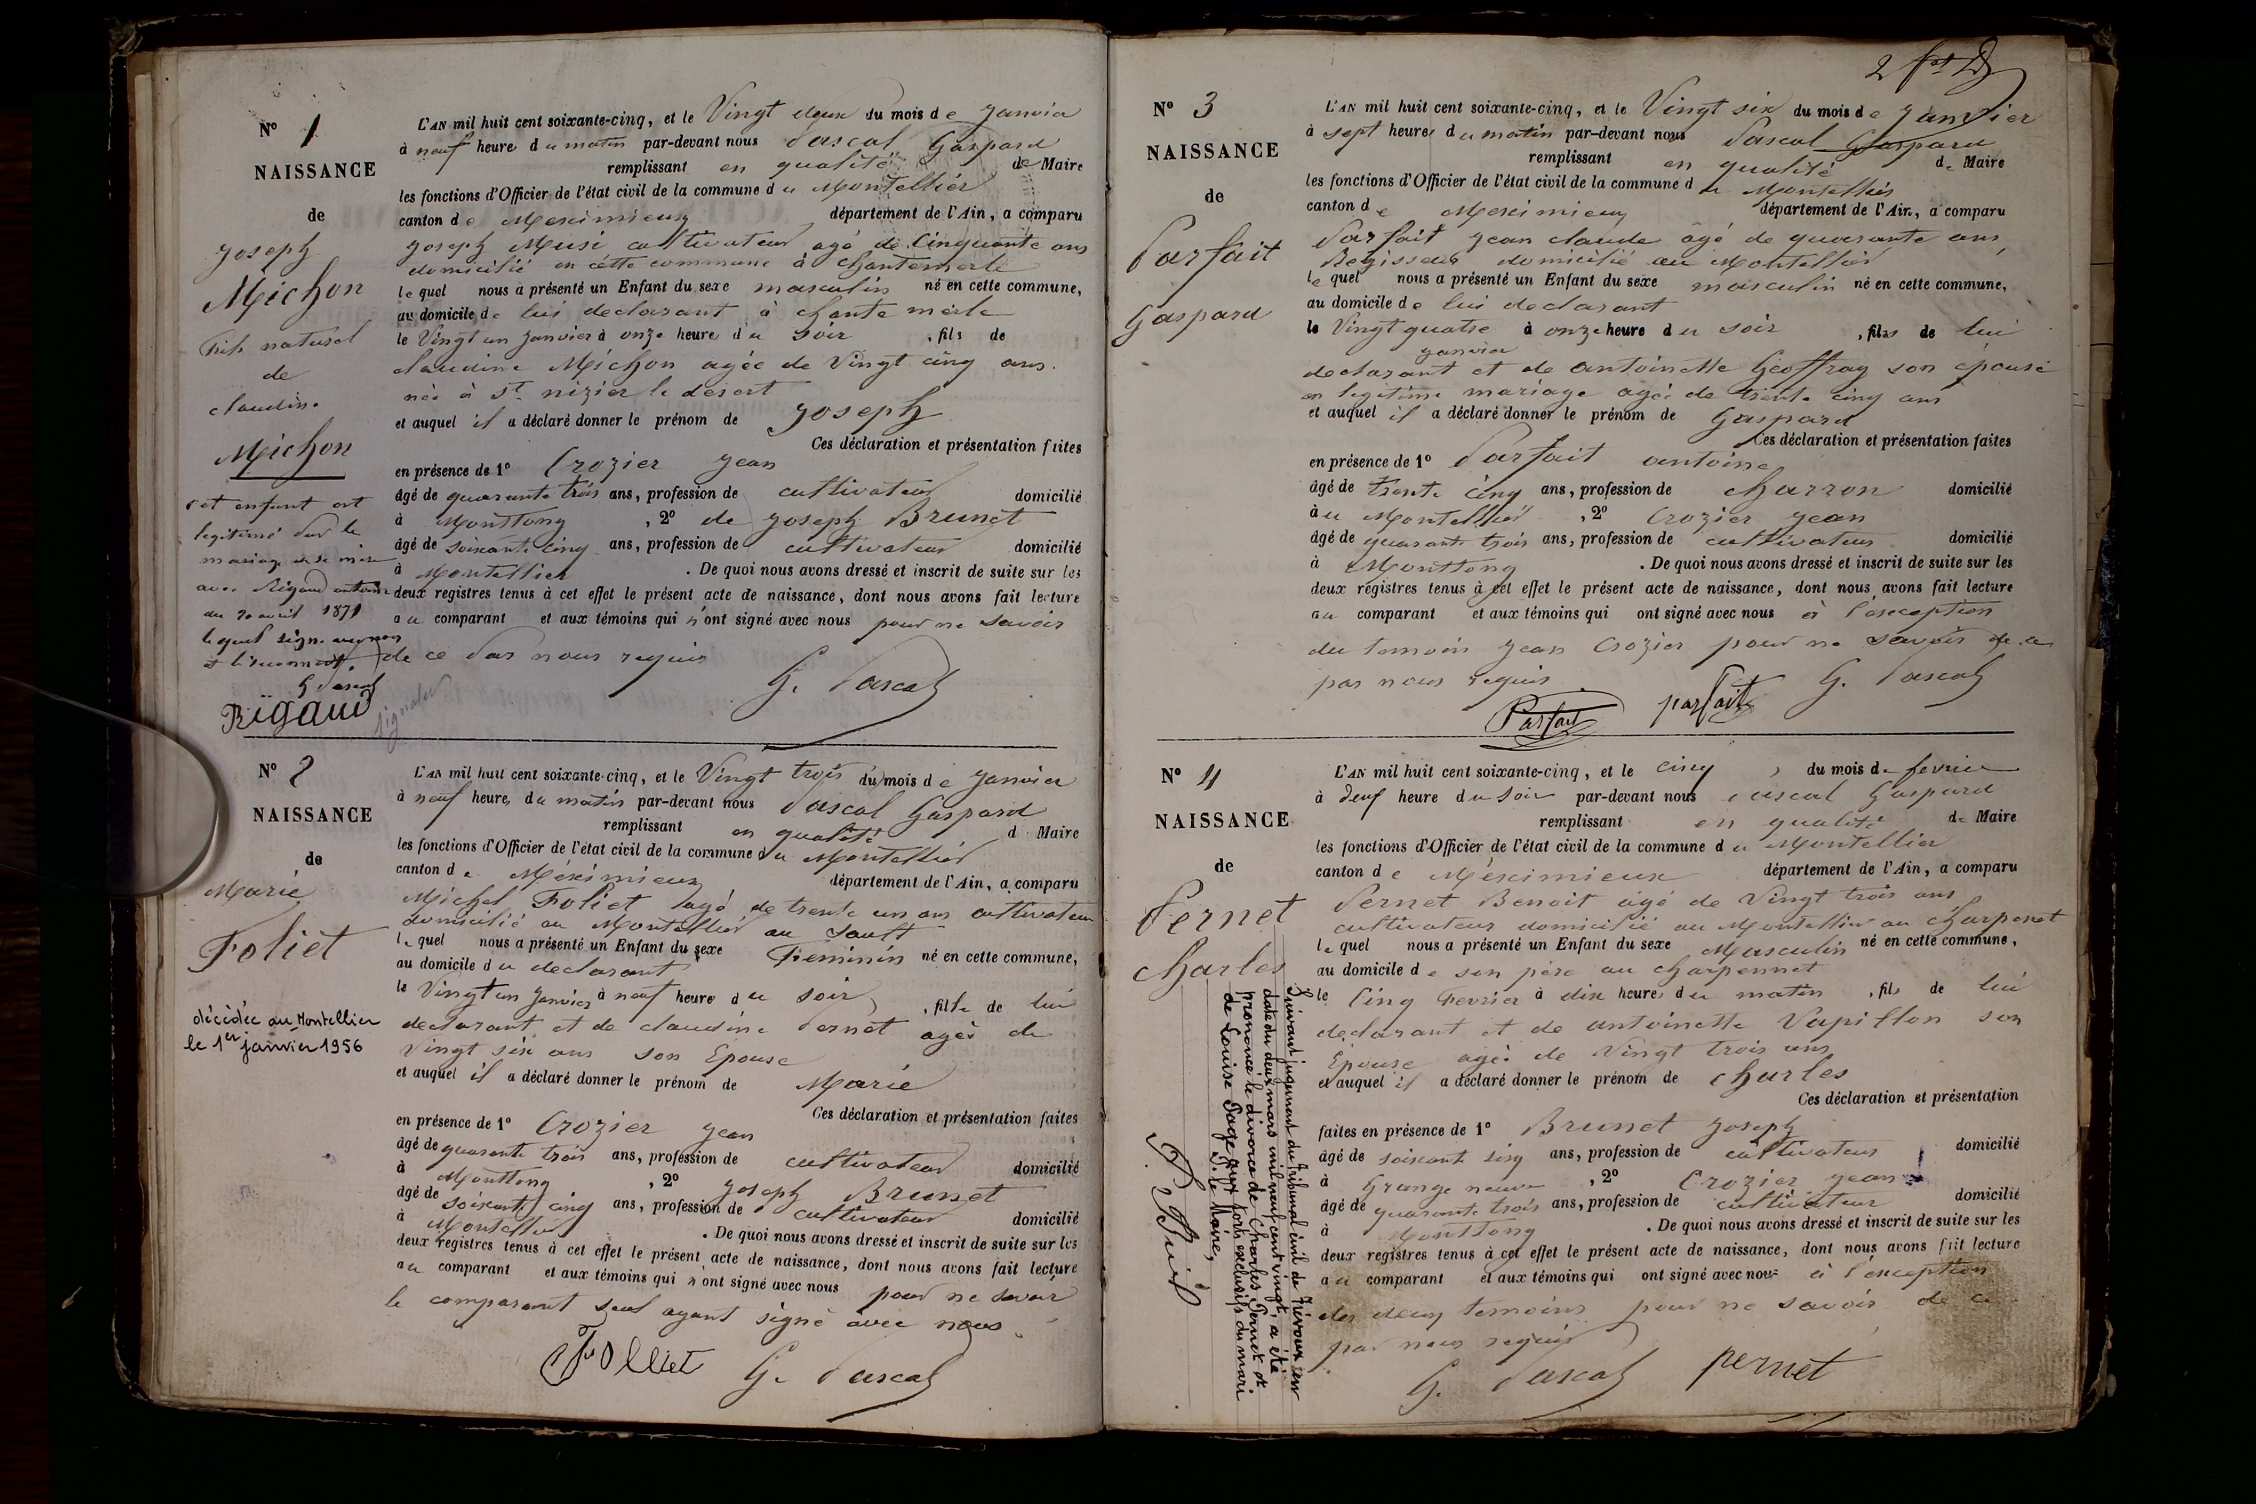 N° 1
NAISSANCE
de
Joseph
Michon
Fils naturel
de
claudine
Michon
cet enfant est
legitimé par le
mariage de sa mère
avec Rigaud antoine
du 20 avril 1871
lequel signe avec nous
G Pascal
Rigaud
L'AN mil huit cent soixante-cinq, et le Vingt deux du mois de Janvier
à neuf heure du matin par-devant nous Pascal Gaspard
remplissant en qualité de Maire
les fonctions d'Officier de l'état civil de la commune du Montellier
canton de Meximieux département de l'Ain, a comparu
Joseph Musi cultivateur agé de Cinquante ans
domicilié en cette commune à Chantemerle
lequel nous a présenté un Enfant du sexe masculin né en cette commune,
au domicile de lui declarant à chante merle
le Vingt un Janvier à onze heure du soir , fils de
claudine Michon agée de Vingt cinq ans
née à St nizier le desert
et auquel il a déclaré donner le prénom de Joseph
Ces déclaration et présentation faites
en présence de 1° Crozier Jean
âgé de quarante trois ans, profession de cultivateur domicilié
à Monttong , 2° de Joseph Brunet
âgé de soixante cinq ans, profession de cultivateur domicilié
à Montellier . De quoi nous avons dressé et inscrit de suite sur les
deux registres tenus à cet effet le présent acte de naissance, dont nous avons fait lecture
au comparant et aux témoins qui n'ont signé avec nous pour ne savoir
de ce par nous requis
G. Pascal
N° 2
NAISSANCE
de
Marie
Foliet
décédée au Montellier
le 1er janvier 1956
L'AN mil huit cent soixante-cinq, et le Vingt trois du mois de Janvier
à neuf heures du matin par-devant nous Pascal Gaspard
remplissant en qualité d Maire
les fonctions d'Officier de l'état civil de la commune du Montellier
canton de Méximieux département de l'Ain, a comparu
Michel Foliet agé de trente un ans cultivateur
domicilié au Montellier au Sault
lequel nous a présenté un Enfant du sexe Feminin né en cette commune,
au domicile du declarant
le Vingt un Janvier à neuf heure du soir , fille de lui
declarant et de claudine Pernet agée de
Vingt six ans son Epouse
et auquel il a déclaré donner le prénom de Marie
Ces déclaration et présentation faites
en présence de 1° Crozier Jean
âgé de quarante trois ans, profession de cultivateur domicilié
à Monttong , 2° Joseph Brunet
âgé de soixante cinq ans, profession de cultivateur domicilié
à Montellier . De quoi nous avons dressé et inscrit de suite sur les
deux registres tenus à cet effet le présent acte de naissance, dont nous avons fait lecture
au comparant et aux témoins qui n'ont signé avec nous pour ne savoir
le comparant seul ayant signé avec nous
Folliet G. Pascal
2
N° 3
NAISSANCE
de
Parfait
Gaspard
L'AN mil huit cent soixante-cinq, et le Vingt six du mois de Janvier
à sept heures du matin par-devant nous Pascal Gaspard
remplissant en qualité de Maire
les fonctions d'Officier de l'état civil de la commune du Montellier
canton de Meximieux département de l'Ain, a comparu
Parfait Jean claude âgé de quarante ans
Regisseur domicilié au Montellier
lequel nous a présenté un Enfant du sexe masculin né en cette commune,
au domicile de lui declarant
le Vingt quatre à onze heure du soir , fils de lui
janvier
declarant et de antoinette Geoffray son épouse
en legitime mariage agée de trente cinq ans
et auquel il a déclaré donner le prénom de Gaspard
Ces déclaration et présentation faites
en présence de 1° Parfait antoine
âgé de trente cinq ans, profession de charron domicilié
à u Montellier , 2° Crozier Jean
âgé de quarante trois ans, profession de cultivateur domicilié
à Monttong . De quoi nous avons dressé et inscrit de suite sur les
deux registres tenus à cet effet le présent acte de naissance, dont nous avons fait lecture
au comparant et aux témoins qui ont signé avec nous à l'exception
du temoin Jean Crozier pour ne savoir de ce
par nous requis
Parfait parfait G. Pascal
N° 4
NAISSANCE
de
Pernet
Charles
Suivant jugement du Tribunal civil de Trévoux en
date du deux mars mil neuf cent vingt, a été
prononcé le divorce de Charles Pernet et
de Louise Page aux torts exclusifs du mari
P. le Maire,
L'AN mil huit cent soixante-cinq, et le cinq du mois de fevrier
à neuf heure du soir par-devant nous Pascal Gaspard
remplissant en qualité de Maire
les fonctions d'Officier de l'état civil de la commune du Montellier
canton de Méximieux département de l'Ain, a comparu
Pernet Benoit agé de Vingt trois ans
cultivateur domicilié au Montellier au Charpenet
lequel nous a présenté un Enfant du sexe Masculin né en cette commune,
au domicile de son père au Charpennet
le Cinq Fevrier à dix heures du matin , fils de lui
declarant et de antoinette Vapillon son
Epouse agée de Vingt trois ans
et auquel il a déclaré donner le prénom de Charles
Ces déclaration et présentation
faites en présence de 1° Brunet Joseph
âgé de soixante cinq ans, profession de cultivateur domicilié
à Grange neuve , 2° Crozier Jean
âgé de quarante trois ans, profession de cultivateur domicilié
à Monttong . De quoi nous avons dressé et inscrit de suite sur les
deux registres tenus à cet effet le présent acte de naissance, dont nous avons fait lecture
au comparant et aux témoins qui ont signé avec nous à l'exception
des deux temoins pour ne savoir de ce
par nous requis
G. Pascal pernet